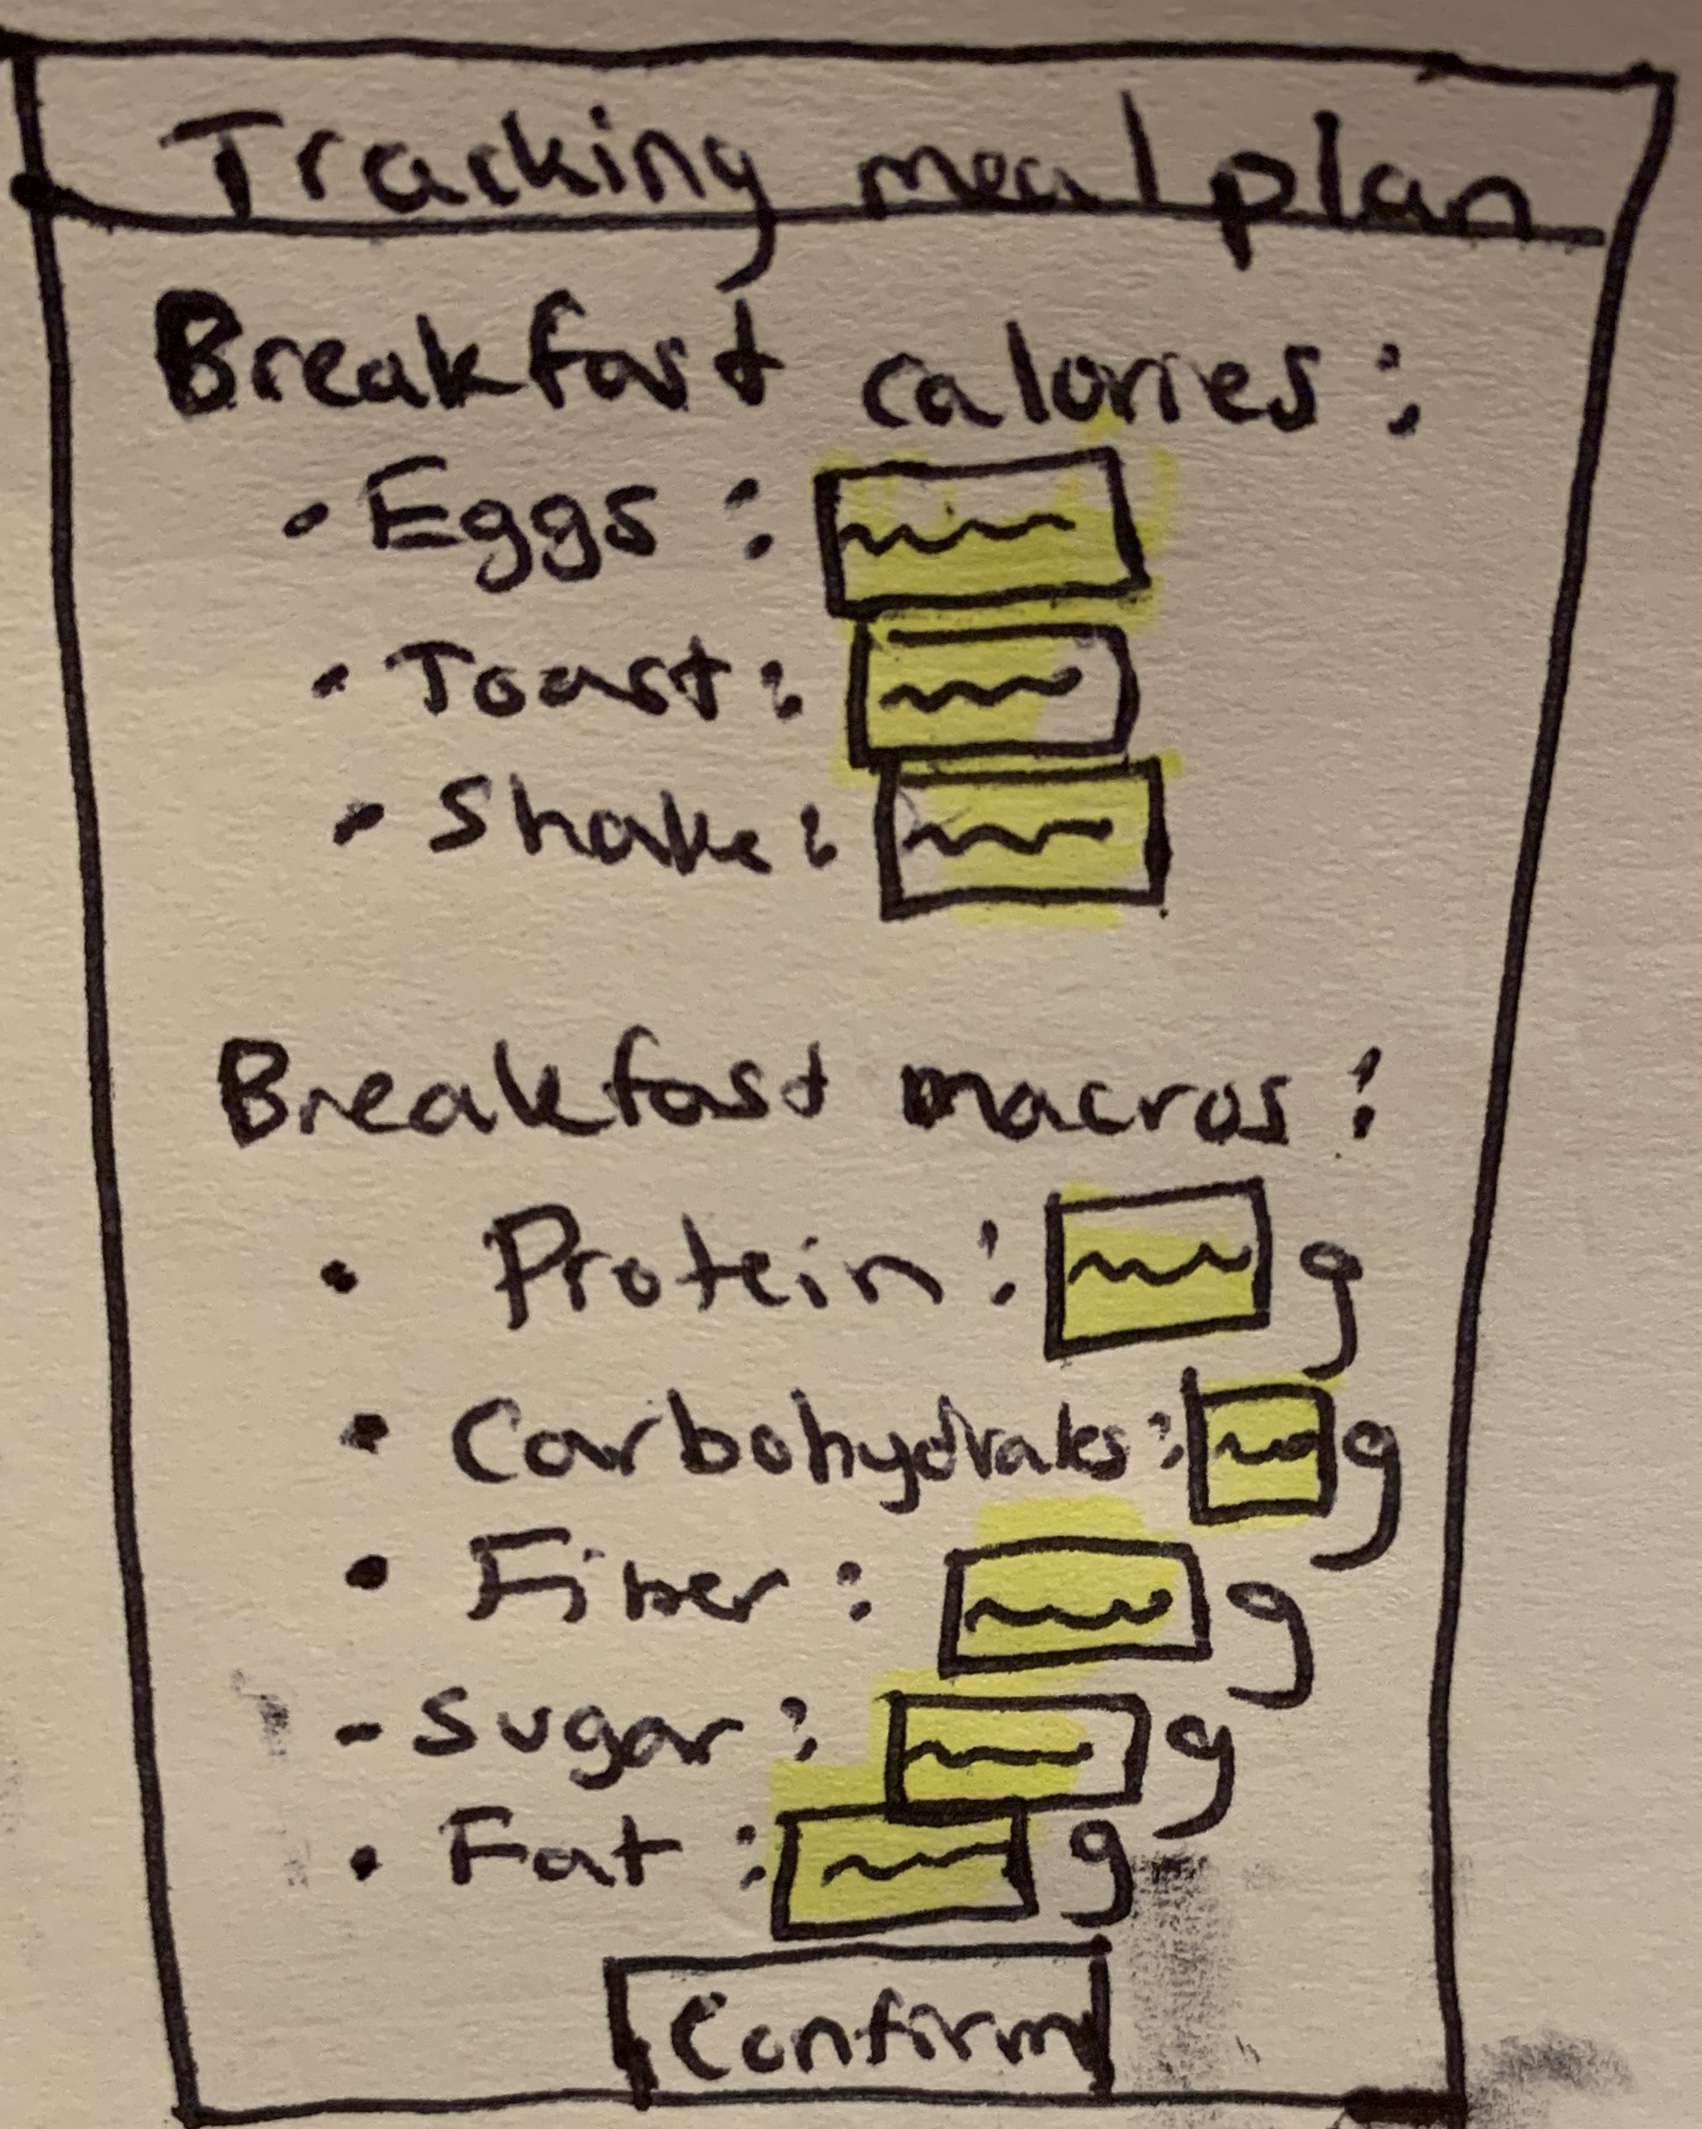 Tracking meal plan
Breakfast calories:
• Eggs:
• Toast:
• Shake:
Breakfast macros:
• Protein: g
• Carbohydrates: g
• Fiber: g
- Sugar: g
• Fat: g
Confirm